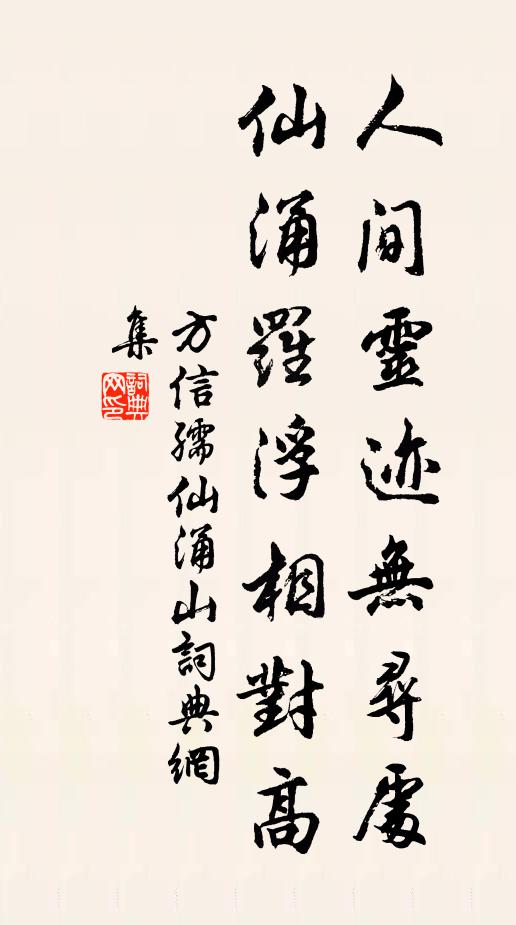 人間靈迹無尋處
仙涌羅浮相對高
方信孺仙涌山詞典網
集
詞典网印